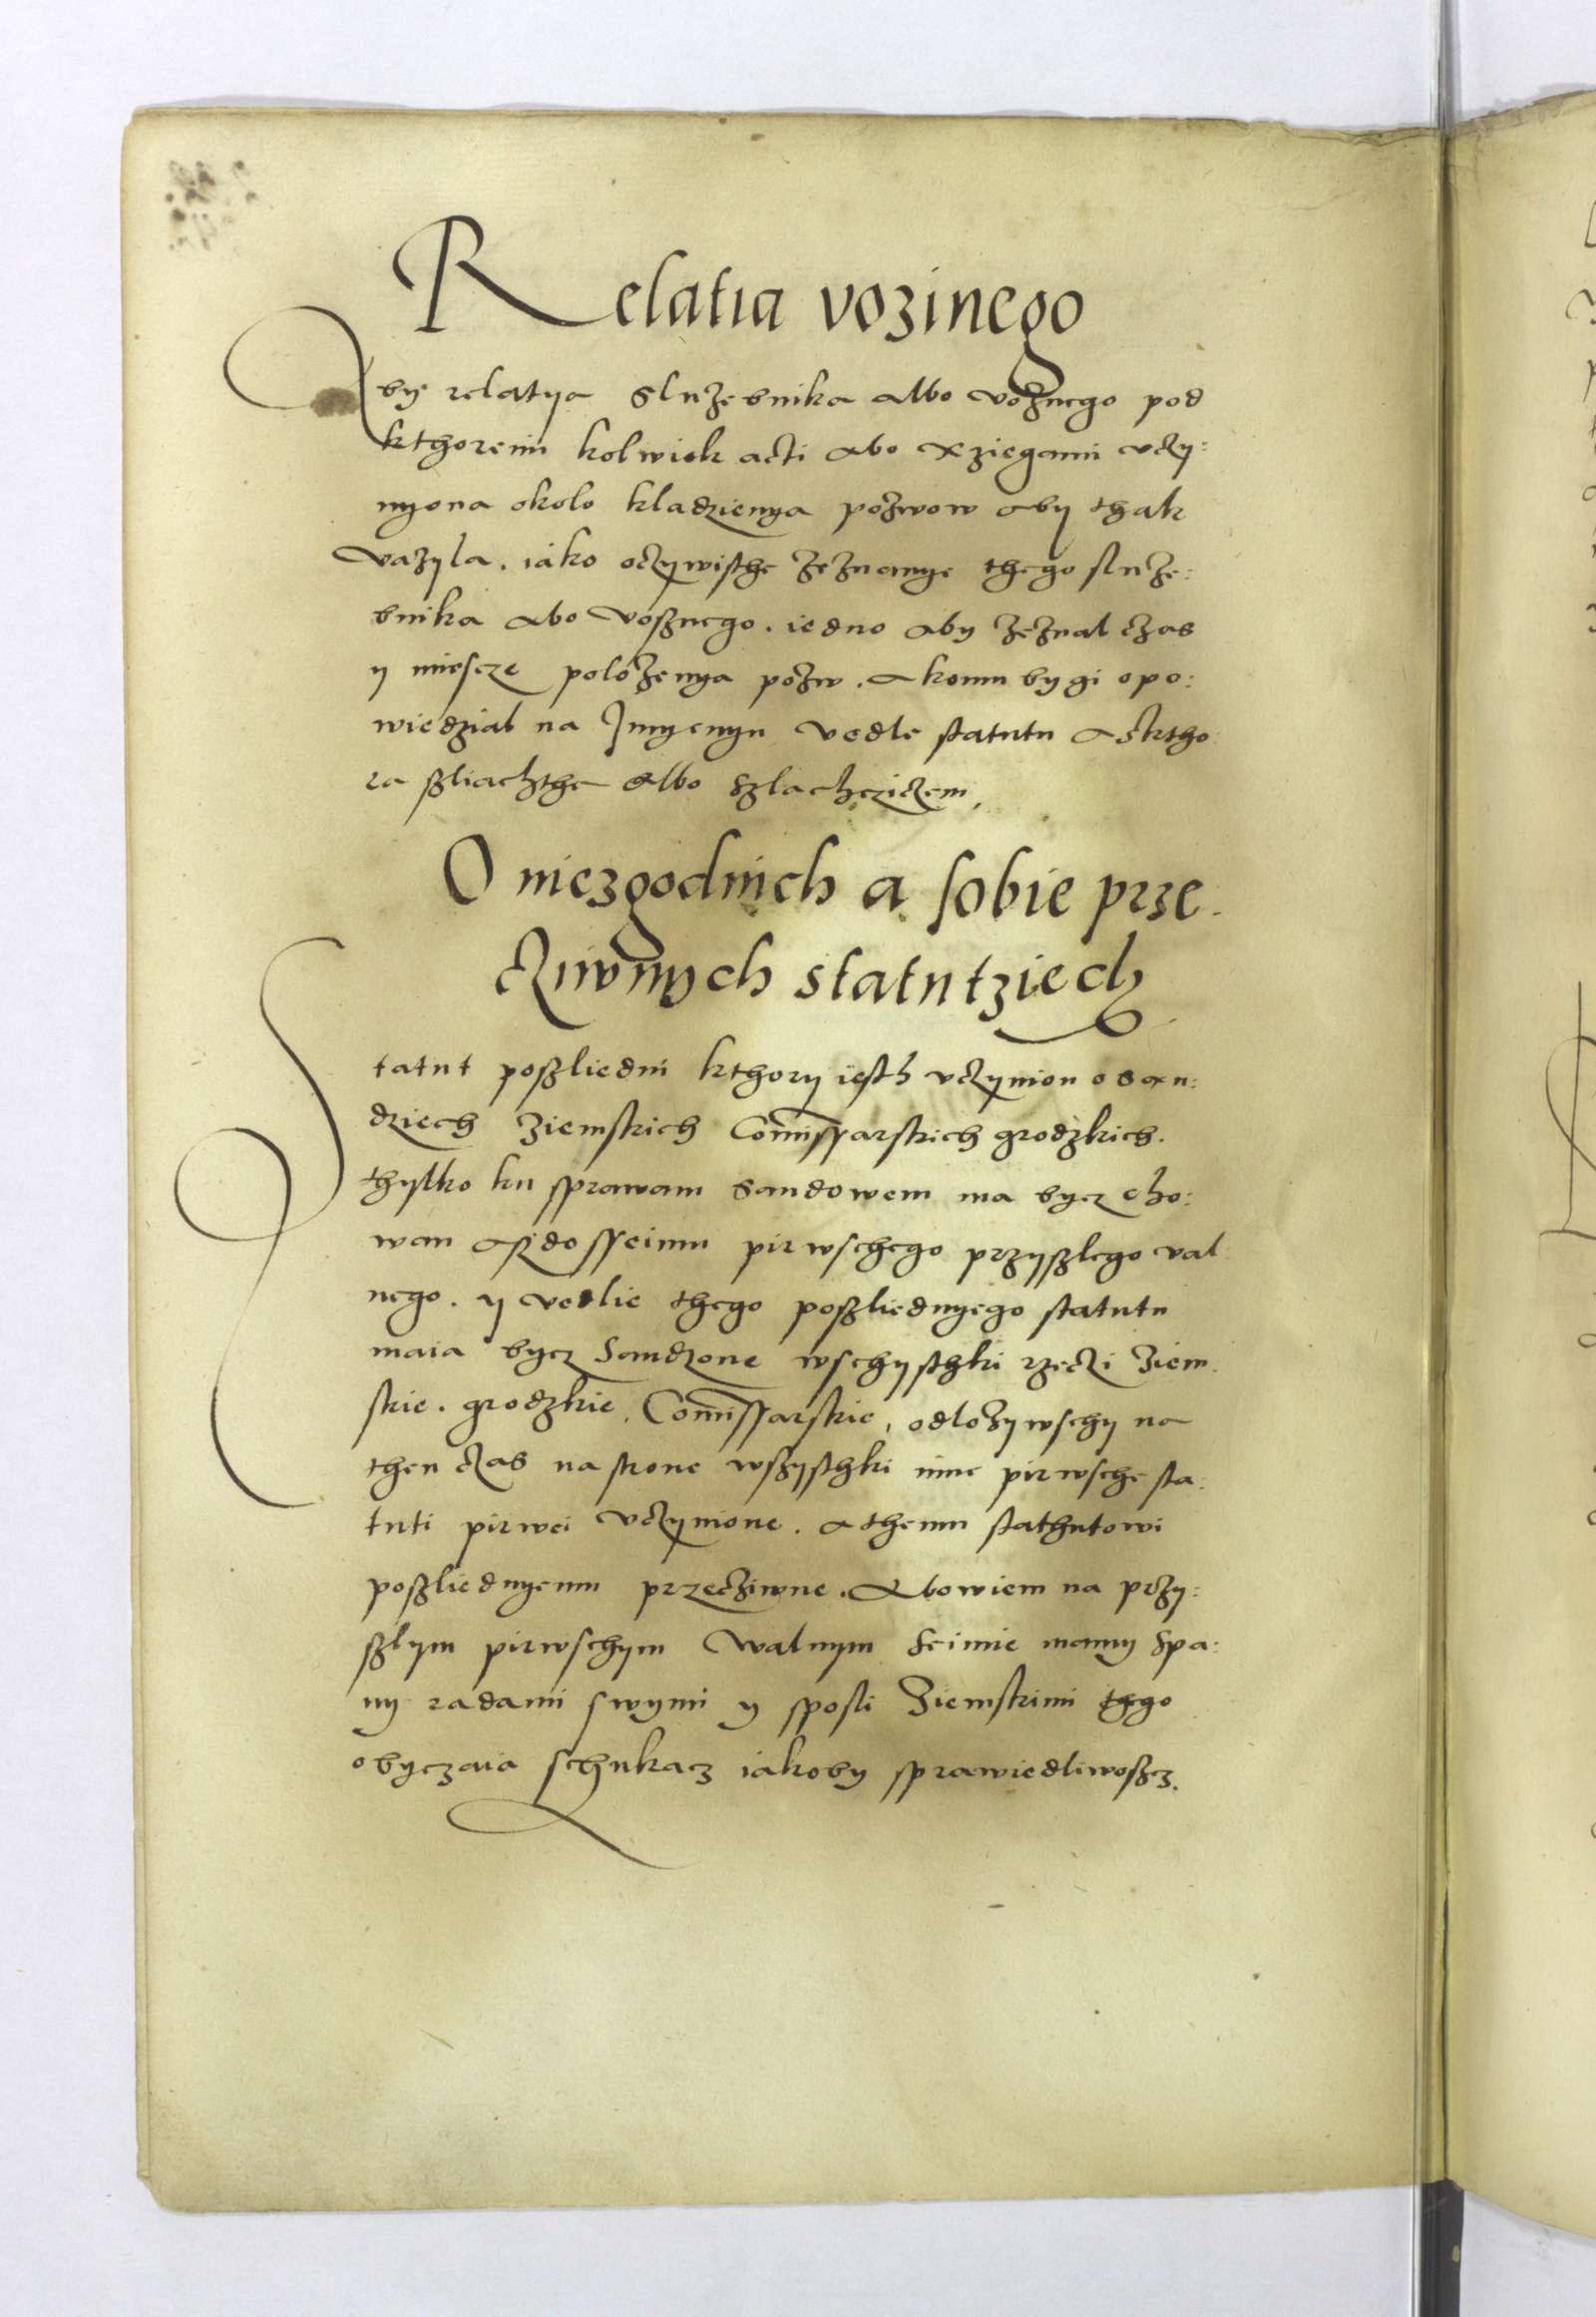 Relatia vozinego
Aby relatÿa Sluzebnika albo voznego pod
kthoremi kolwiek acti abo xziegami vczÿ:
nÿona okolo kladzienÿa pozwow abÿ thak
vazÿla. iako oczÿwisthe zeznanÿe thego sluze:
bnika abo voßnego. iedno abÿ zeznal czas
ÿ miescze polozenÿa pozw. a komu bÿ gi opo:
wiedzial na Jmÿenÿu vedle statutu a sktho
ra ßliachtha albo szlachcziczem,
O niezgodnich a sobie prze.
cziwnÿch statutziech
Statut poßliedni kthorÿ iesth vczÿnion o san:
dziech Ziemskich Comissarskich grodzkich.
thÿlko ku sprawam sandowem ma bÿcz cho:
wan aß do sseimu pirwschego przÿßlego val
nego. ÿ vedlie thego poßliednÿego statutu
maia bÿcz Sandzone wschÿsthki rzeczi Ziem.
skie. grodzkie. Comissarskie, odlozÿwschÿ na
then czas na strone wßÿsthki inne pirwsche sta:
tuti pirwei vczÿnione. a themu stathutowi
poßliednÿemu przecziwne. Abowiem na przÿ:
ßlÿm pirwschÿm Walnÿm Seimie mamÿ Spa:
nÿ radami swÿmi ÿ sposli Ziemskimi thego
obÿczaia schukacz iakobÿ sprawiedliwoßcz.